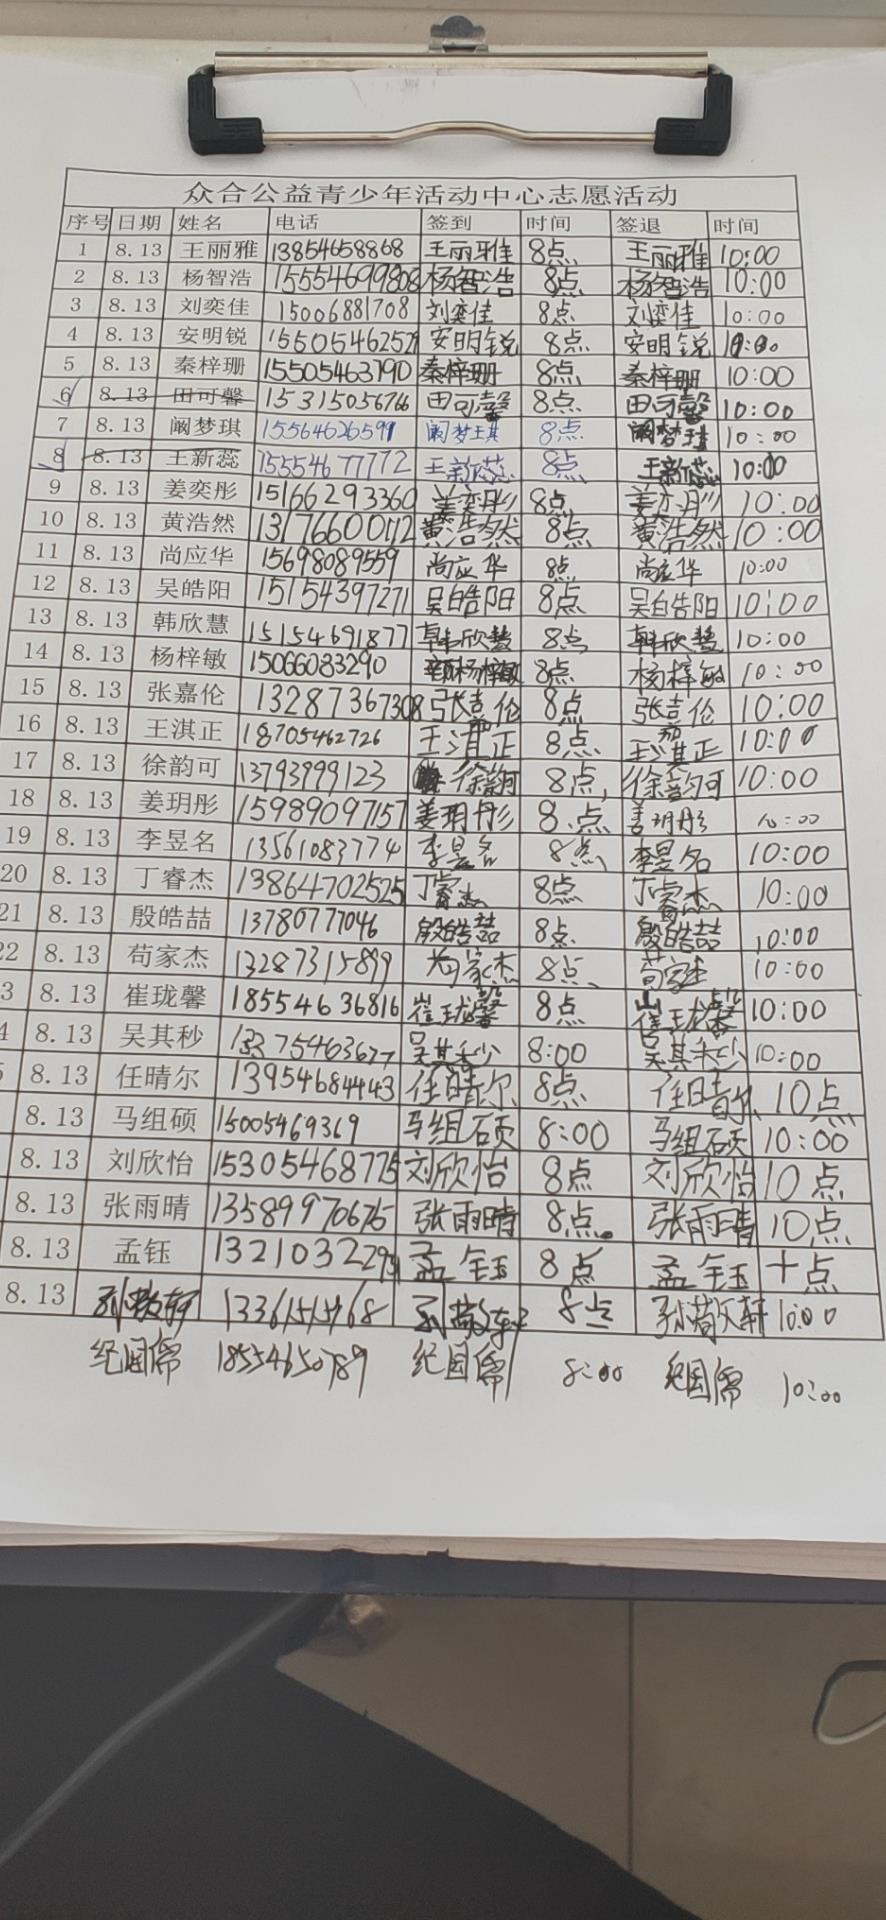 众合公益青少年活动中心志愿活动
序号 日期 姓名 电话 签到 时间 签退 时间
1 8.13 王丽雅 13854658868 王丽雅 8点 王丽雅 10:00
2 8.13 杨智浩 15554699808 杨智浩 8点 杨智浩 10:00
3 8.13 刘奕佳 15006881708 刘奕佳 8点 刘奕佳 10:00
4 8.13 安明锐 15505462529 安明锐 8点 安明锐 10:00
5 8.13 秦梓珊 15505463790 秦梓珊 8点 秦梓珊 10:00
6 8.13 田可馨 15315056766 田可馨 8点 田可馨 10:00
7 8.13 阚梦琪 15564626599 阚梦琪 8点 阚梦琪 10:00
8 8.13 王新蕊 15554677772 王新蕊 8点 王新蕊 10:00
9 8.13 姜奕彤 15166293360 姜奕彤 8点 姜奕彤 10:00
10 8.13 黄浩然 13176600112 黄浩然 8点 黄浩然 10:00
11 8.13 尚应华 15698089559 尚应华 8点 尚应华 10:00
12 8.13 吴皓阳 15154397271 吴皓阳 8点 吴皓阳 10:00
13 8.13 韩欣慧 15154691877 韩欣慧 8点 韩欣慧 10:00
14 8.13 杨梓敏 15066083290 杨梓敏 8点 杨梓敏 10:00
15 8.13 张嘉伦 13287367308 张嘉伦 8点 张嘉伦 10:00
16 8.13 王淇正 18705462726 王淇正 8点 王淇正 10:00
17 8.13 徐韵可 13793999123 徐韵可 8点 徐韵可 10:00
18 8.13 姜玥彤 15989097157 姜玥彤 8点 姜玥彤 10:00
19 8.13 李昱名 13561083774 李昱名 8点 李昱名 10:00
20 8.13 丁睿杰 13864702525 丁睿杰 8点 丁睿杰 10:00
21 8.13 殷皓喆 13780777046 殷皓喆 8点 殷皓喆 10:00
22 8.13 荀家杰 13287315899 荀家杰 8点 荀家杰 10:00
3 8.13 崔珑馨 18554636816 崔珑馨 8点 崔珑馨 10:00
4 8.13 吴其秒 吴其秒 8:00 吴其秒 10:00
5 8.13 任晴尔 13954684443 任晴尔 8点 任晴尔 10点
8.13 马组硕 15005469369 马组硕 8:00 马组硕 10:00
8.13 刘欣怡 15305468775 刘欣怡 8点 刘欣怡 10点
8.13 张雨晴 13589970675 张雨晴 8点 张雨晴 10点
8.13 孟钰 孟钰 8点 孟钰 十点
8.13 孙敬轩 孙敬轩 8点 孙敬轩 10:00
纪国儒 18554650789 纪国儒 8:00 纪国儒 10:00